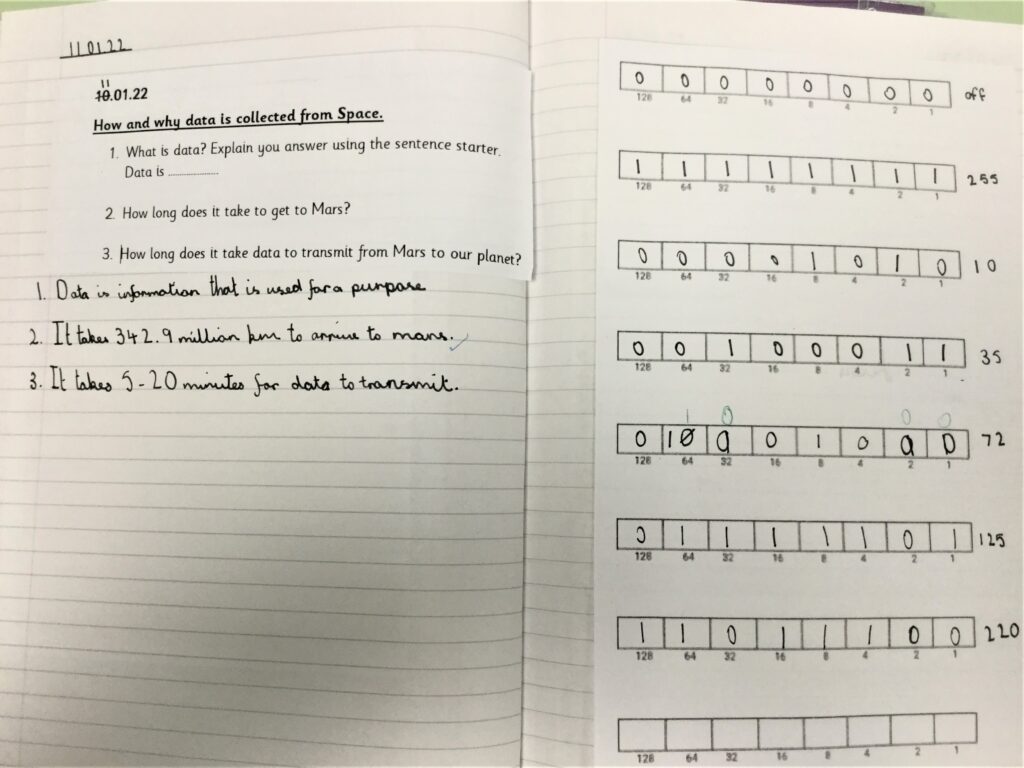 11.01.22
11
10.01.22
How and why data is collected from Space.
1. What is data? Explain you answer using the sentence starter.
Data is ....................
2. How long does it take to get to Mars?
3. How long does it take data to transmit from Mars to our planet?
1. Data is information that is used for a purpose
2. It takes 342.9 million km to arrive to mars.
3. It takes 5-20 minutes for data to transmit.
0 0 0 0 0 0 0 0 off
128 64 32 16 8 4 2 1
1 1 1 1 1 1 1 1 255
128 64 32 16 8 4 2 1
0 0 0 0 1 0 1 0 10
128 64 32 16 8 4 2 1
0 0 1 0 0 0 1 1 35
128 64 32 16 8 4 2 1
1 0 0 0
0 10 0 0 1 0 0 0 72
128 64 32 16 8 4 2 1
0 1 1 1 1 1 0 1 125
128 64 32 16 8 4 2 1
1 1 0 1 1 1 0 0 220
128 64 32 16 8 4 2 1
128 64 32 16 8 4 2 1